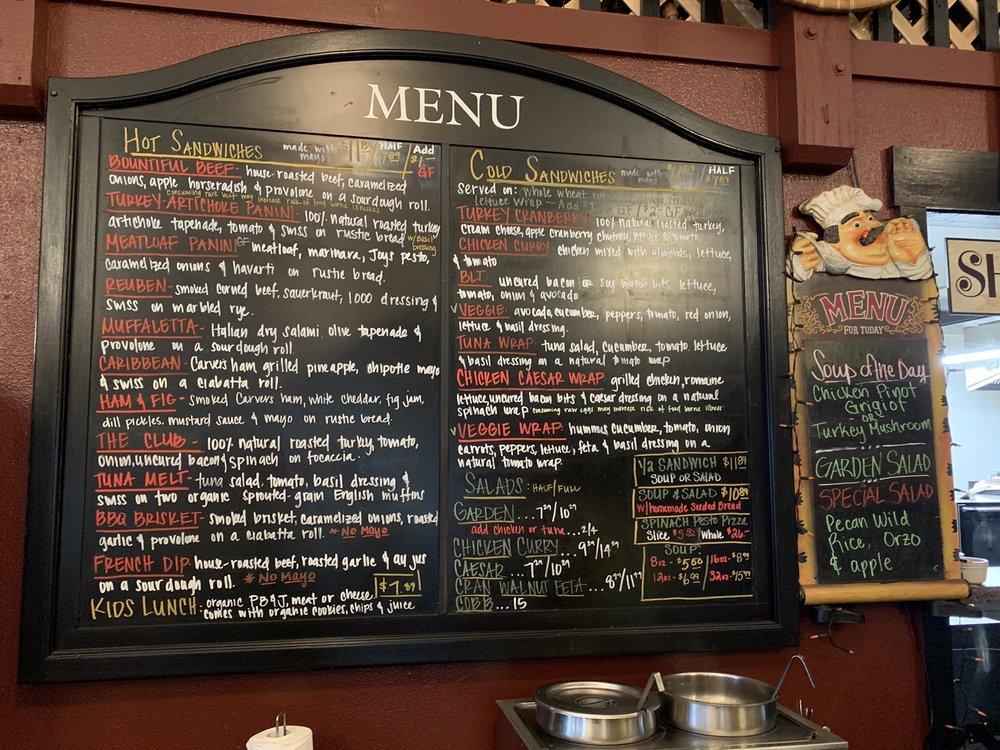 MENU
HOT SANDWICHES made with mayo HALF Add
GF
BOUNTIFUL BEEF- house-roasted beef, caramelized
onions, apple horseradish & provolone on a sourdough roll.
consuming rare beef may increase risk of food borne illnesses
TURKEY-ARTICHOKE PANINI- 100% natural roasted turkey
artichoke tapenade, tomato & swiss on rustic bread w/Basil Dressing
MEATLOAF PANINI GF meatloaf, marinara, Joys pesto,
caramelized onions & havarti on rustic bread.
REUBEN- smoked corned beef, sauerkraut, 1000 dressing &
swiss on marbled rye.
MUFFALETTA- Italian dry salami olive tapenade &
provolone on a sourdough roll
CARIBBEAN- Carvers ham grilled pineapple, chipotle mayo
& swiss on a ciabatta roll.
HAM & FIG- smoked Carvers ham, white cheddar, fig jam,
dill pickles, mustard sauce & mayo on rustic bread.
THE CLUB- 100% natural roasted turkey, tomato,
onion, uncured bacon & spinach on focaccia.
TUNA MELT- tuna salad, tomato, basil dressing &
swiss on two organic sprouted-grain English muffins
BBQ BRISKET- smoked brisket, caramelized onions, roasted
garlic & provolone on a ciabatta roll. *No Mayo
FRENCH DIP- house-roasted beef, roasted garlic & au jus
on a sourdough roll. *No Mayo
KIDS LUNCH- organic PB&J, meat or cheese $7.89
comes with organic cookies, chips & juice
COLD SANDWICHES made with mayo HALF
served on: whole wheat
lettuce wrap ~ Add
TURKEY CRANBERRY- 100% natural roasted turkey,
cream cheese, apple cranberry chutney, lettuce & tomato.
CHICKEN CURRY- chicken mixed with almonds, lettuce,
& tomato
BLT- uncured bacon or soy bacon bits, lettuce,
tomato, onion & avocado
VEGGIE- avocado, cucumber, peppers, tomato, red onion,
lettuce & basil dressing.
TUNA WRAP- tuna salad, cucumber, tomato, lettuce
& basil dressing on a natural tomato wrap
CHICKEN CAESAR WRAP grilled chicken, romaine
lettuce, uncured bacon bits & caesar dressing on a natural
spinach wrap consuming raw eggs may increase risk of food borne illness
VEGGIE WRAP- hummus, cucumber, tomato, onion
carrots, peppers, lettuce, feta & basil dressing on a
natural tomato wrap.
SALADS: HALF/FULL
GARDEN...7 29/10 29
add chicken or tuna...2/4
CHICKEN CURRY...9 29/14 29
CAESAR...7 29/10 29
CRAN WALNUT FETA...8 29/11 29
COBB...15
1/2 SANDWICH $11 89
SOUP OR SALAD
SOUP & SALAD $10 89
w/homemade Seeded Bread
SPINACH Pesto Pizza
Slice $5.50 Whole $26.-
SOUP:
8oz- $5 50 16oz- $8 99
12oz- $6 99 32oz- $15.99
MENU
FOR TODAY
Soup of the Day
Chicken Pinot
Grigiot
or
Turkey Mushroom
GARDEN SALAD
SPECIAL SALAD
Pecan Wild
Rice, Orzo
& apple